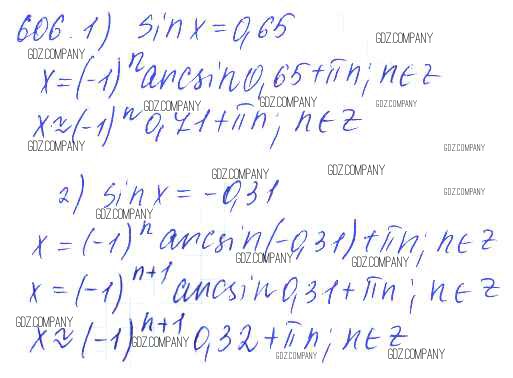 606. 1) sin x = 0,65
GDZ.COMPANY
GDZ.COMPANY
x = (-1)^n arcsin 0,65 + πn; n ∈ z
GDZ.COMPANY GDZ.COMPANY GDZ.COMPANY
x ≈ (-1)^n 0,71 + πn; n ∈ z
GDZ.COMPANY GDZ.COMPANY
GDZ.COMPANY GDZ.COMPANY
2) sin x = -0,31
GDZ.COMPANY
GDZ.COMPANY
x = (-1)^n arcsin(-0,31) + πn; n ∈ z
GDZ.COMPANY GDZ.COMPANY
x = (-1)^{n+1} arcsin 0,31 + πn; n ∈ z
GDZ.COMPANY
x ≈ (-1)^{n+1} 0,32 + πn; n ∈ z
GDZ.COMPANY GDZ.COMPANY GDZ.COMPANY